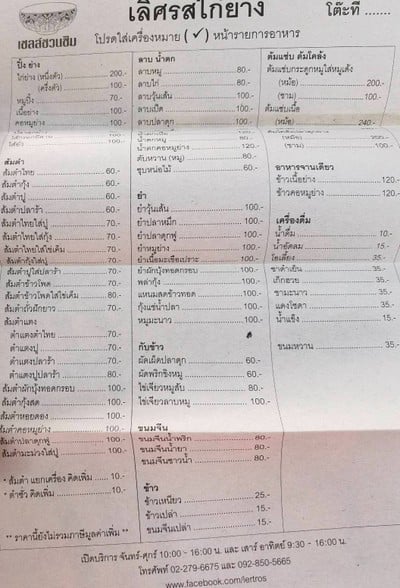 เลิศรสไก่ย่าง
โต๊ะที่ .......
เชลล์ชวนชิม
โปรดใส่เครื่องหมาย (✓) หน้ารายการอาหาร
ปิ้ง ย่าง
ไก่ย่าง (หนึ่งตัว) 200.-
(ครึ่งตัว) 100.-
หมูปิ้ง 70.-
เนื้อย่าง 100.-
คอหมูย่าง 100.-
ส้มตำ
ส้มตำไทย 60.-
ส้มตำกุ้ง 60.-
ส้มตำปู 60.-
ส้มตำปลาร้า 60.-
ส้มตำไทยใส่ปู 70.-
ส้มตำไทยใส่กุ้ง 70.-
ส้มตำไทยใส่ไข่เค็ม 80.-
ส้มตำกุ้งใส่ปู 70.-
ส้มตำปูใส่ปลาร้า 70.-
ส้มตำข้าวโพด 70.-
ส้มตำข้าวโพดใส่ไข่เค็ม 80.-
ส้มตำถั่วฝักยาว 70.-
ส้มตำแตง
ตำแตงตำไทย 70.-
ตำแตงปู 70.-
ตำแตงปลาร้า 70.-
ตำแตงปูปลาร้า 80.-
ส้มตำผักบุ้งทอดกรอบ 100.-
ส้มตำกุ้งสด 100.-
ส้มตำหอยดอง 100.-
ส้มตำคอหมูย่าง 100.-
ส้มตำปลาดุกฟู 100.-
ส้มตำมะม่วงใส่ปู 100.-
* ส้มตำ แยกเครื่อง คิดเพิ่ม 10.-
* ตำซั่ว คิดเพิ่ม 10.-
** ราคานี้ยังไม่รวมภาษีมูลค่าเพิ่ม **
ลาบ น้ำตก
ลาบหมู 80.-
ลาบไก่ 80.-
ลาบวุ้นเส้น 100.-
ลาบเป็ด 100.-
ลาบปลาดุก 100.-
น้ำตกหมู 80.-
น้ำตกคอหมูย่าง 120.-
ตับหวาน (หมู) 80.-
ซุปหน่อไม้ 60.-
ยำ
ยำวุ้นเส้น 100.-
ยำปลาหมึก 100.-
ยำปลาดุกฟู 100.-
ยำหมูย่าง 100.-
ยำเนื้อมะเขือเปราะ 100.-
ยำผักบุ้งทอดกรอบ 100.-
พล่ากุ้ง 100.-
แหนมสดข้าวทอด 100.-
กุ้งแช่น้ำปลา 100.-
หมูมะนาว 100.-
กับข้าว
ผัดเผ็ดปลาดุก 60.-
ผัดพริกขิงหมู 60.-
ไข่เจียวหมูสับ 80.-
ไข่เจียวลาบหมู 100.-
ขนมจีน
ขนมจีนน้ำพริก 80.-
ขนมจีนน้ำยา 80.-
ขนมจีนซาวน้ำ 80.-
ข้าว
ข้าวเหนียว 25.-
ข้าวเปล่า 15.-
ขนมจีนเปล่า 15.-
ต้มแซ่บ ต้มโคล้ง
ต้มแซ่บกระดูกหมูใส่หมูเด้ง
(หม้อ) 200.-
(ชาม) 100.-
ต้มแซ่บเนื้อ
(หม้อ) 240.-
(ชาม) 120.-
อาหารจานเดียว
ข้าวเนื้อย่าง 120.-
ข้าวคอหมูย่าง 120.-
เครื่องดื่ม
น้ำดื่ม 10.-
น้ำอัดลม 15.-
โอเลี้ยง 35.-
ชาดำเย็น 35.-
เก๊กฮวย 35.-
ชามะนาว 35.-
แดงโซดา 35.-
น้ำแข็ง 15.-
ขนมหวาน 35.-
เปิดบริการ จันทร์-ศุกร์ 10:00 - 16:00 น. และ เสาร์ อาทิตย์ 9:30 - 16:00 น.
โทรศัพท์ 02-279-6675 และ 092-850-5665
www.facebook.com/lertros